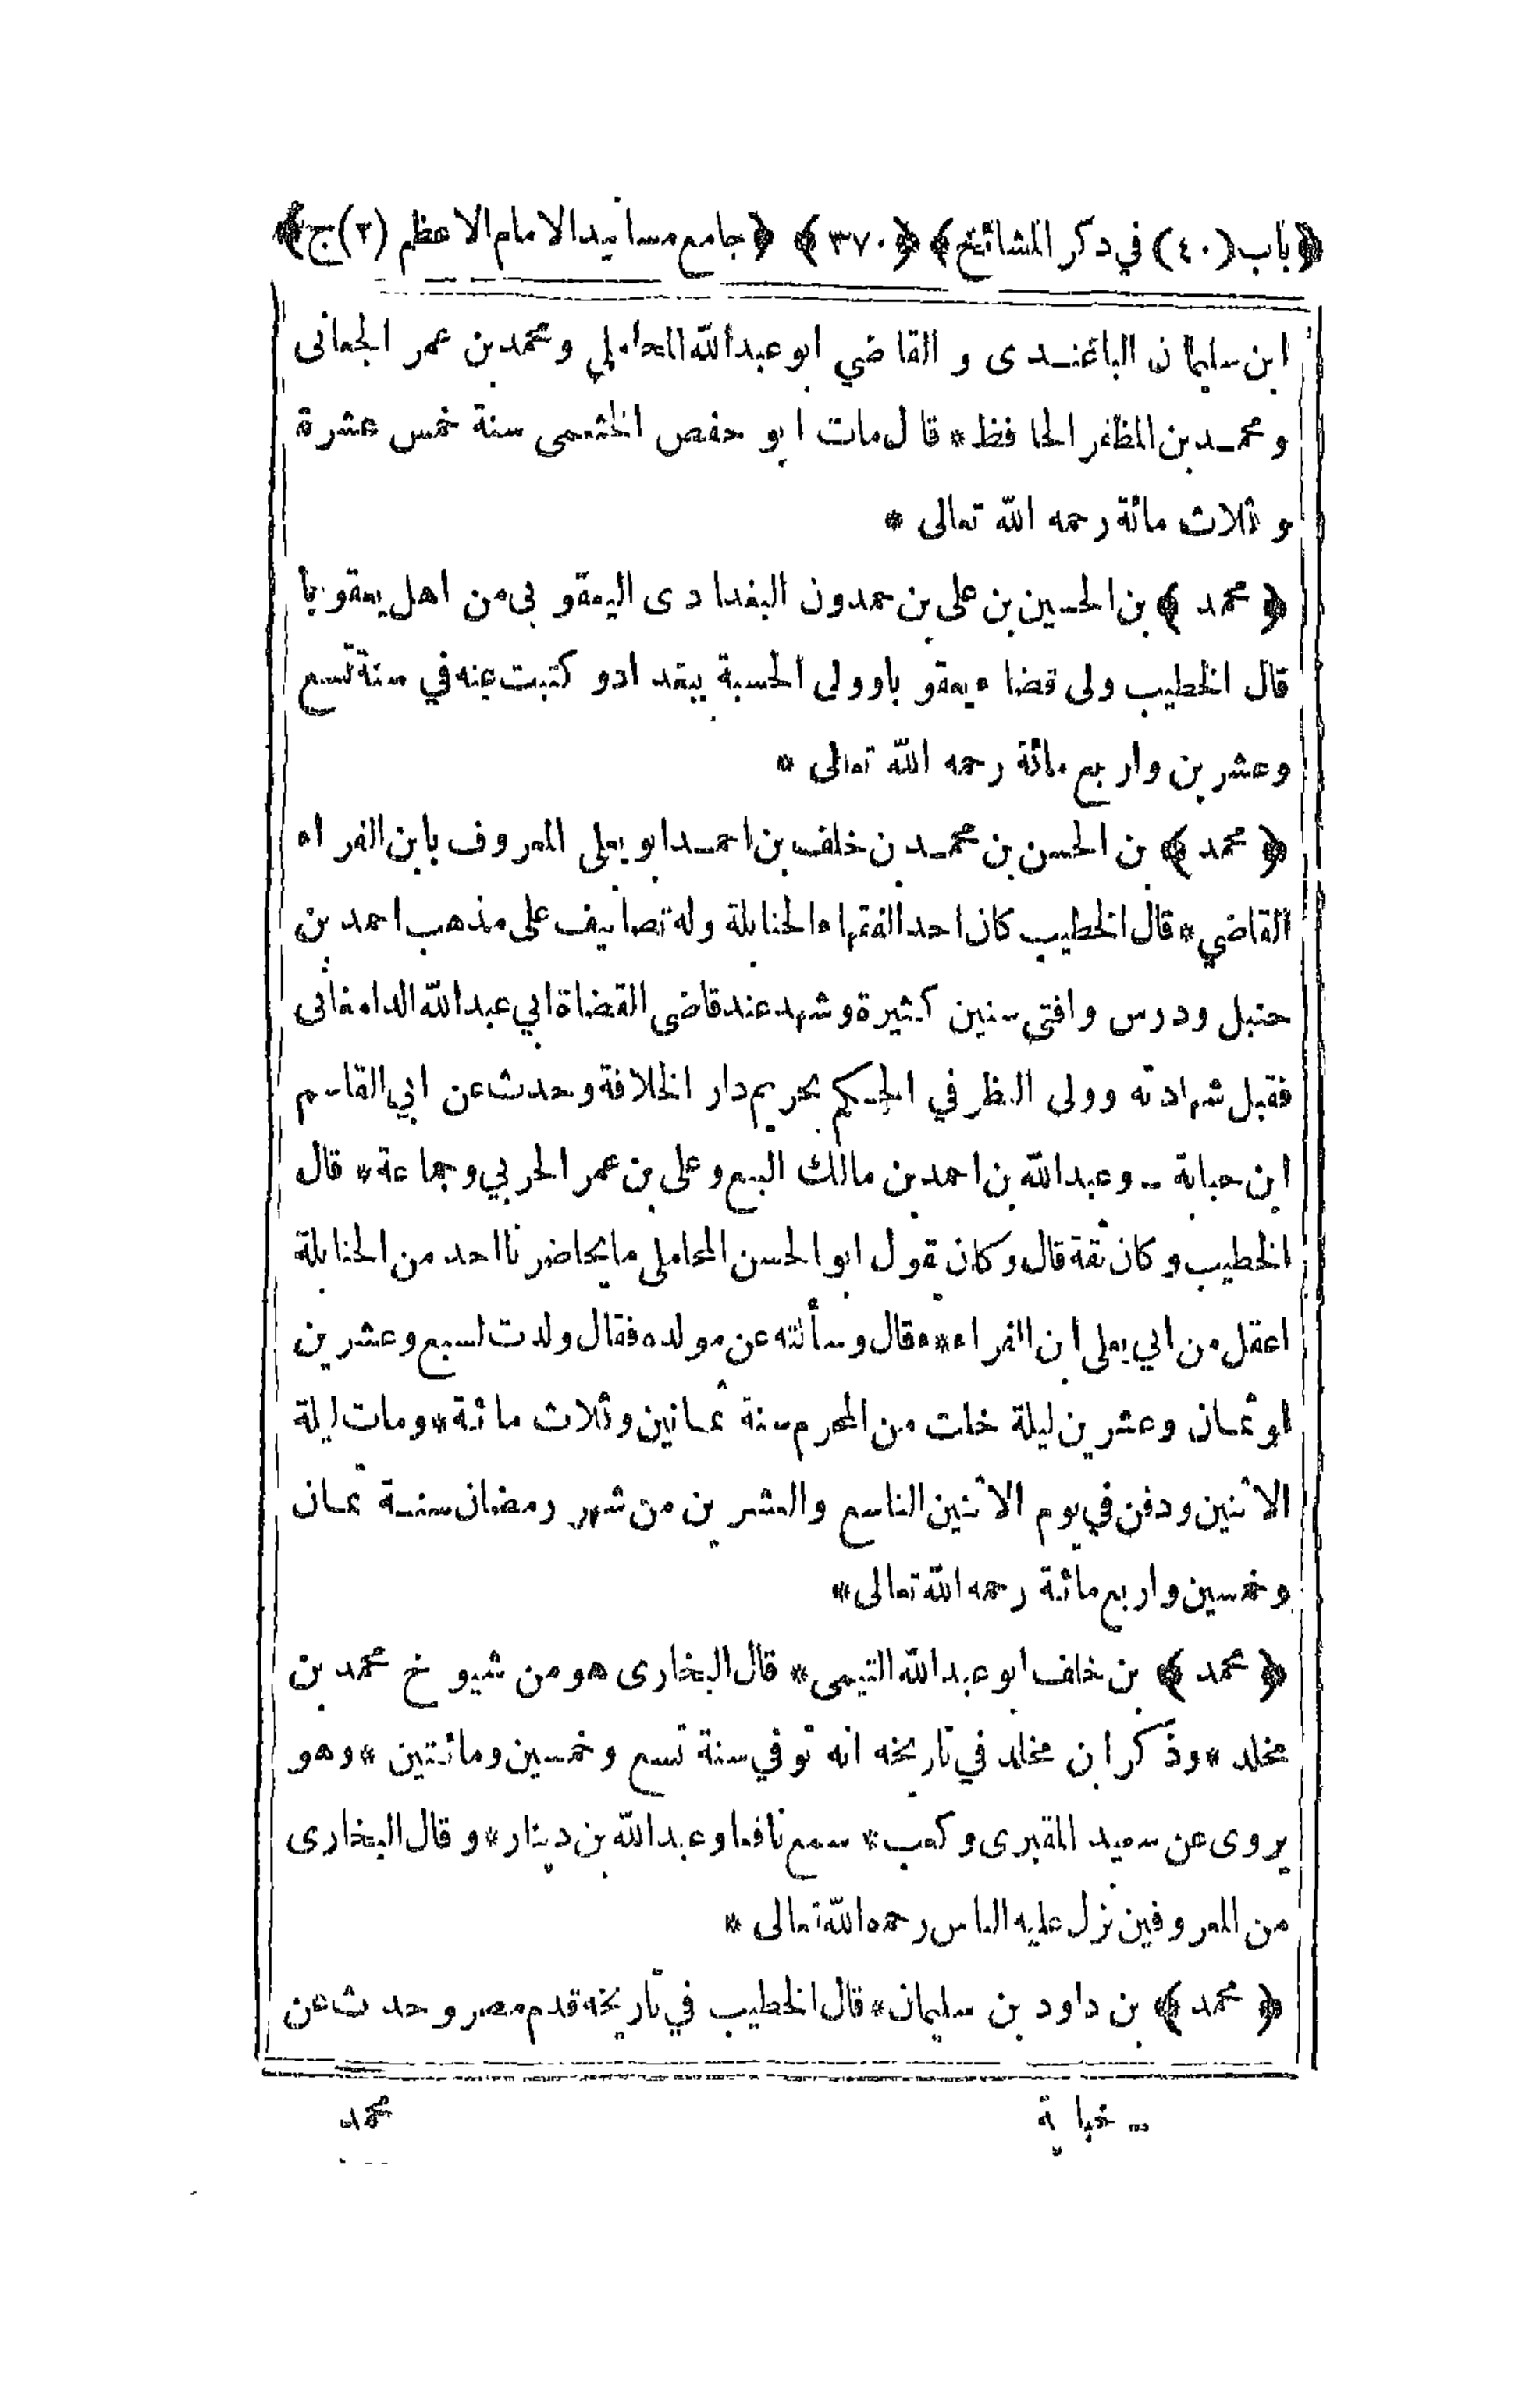 ﴿باب (٤٠) في ذكر المشائخ﴾ ﴿٣٧٠﴾ ﴿جامع مسانيد الامام الاعظم (٢) ج﴾
ابن سليمان الباغندى و القاضي ابو عبدالله المحاملي ومحمد بن عمر الجعانى
ومحمد بن المظفر الحافظ * قال مات ابو حفص الخثعمى سنة خمس عشرة
و ثلاث مائة رحمه الله تعالى *
﴿محمد﴾ بن الحسين بن على بن حمدون البغدادى اليعقوبى من اهل يعقوبا
قال الخطيب ولى قضاء يعقوبا وولى الحسبة ببغداد و كتبت عنه في سنة تسع
وعشرين واربع مائة رحمه الله تعالى *
﴿محمد﴾ بن الحسن بن محمد بن خلف بن احمد ابو يعلى المعروف بابن الفراء
القاضي * قال الخطيب كان احد الفقهاء الحنابلة وله تصانيف على مذهب احمد بن
حنبل ودرس وافتى سنين كثيرة وشهد عند قاضى القضاة ابي عبدالله الدامغانى
فقبل شهادته وولى النظر في الحكم بحريم دار الخلافة وحدث عن ابي القاسم
ابن حبابة ــ وعبدالله بن احمد بن مالك البيع وعلى بن عمر الحربي وجماعة * قال
الخطيب وكان ثقة قال وكان يقول ابو الحسن المحاملى ما يحاضرنا احد من الحنابلة
اعقل من ابي يعلى ابن الفراء * قال وسألته عن مولده فقال ولدت لسبع وعشرين
او ثمان وعشرين ليلة خلت من المحرم سنة ثمانين وثلاث مائة * ومات ليلة
الاثنين ودفن في يوم الاثنين التاسع والعشرين من شهر رمضان سنة ثمان
وخمسين واربع مائة رحمه الله تعالى *
﴿محمد﴾ بن خلف ابو عبدالله التيمى * قال البخارى هو من شيوخ محمد بن
مخلد * وذكر ابن مخلد في تاريخه انه توفي سنة تسع وخمسين ومائتين * وهو
يروى عن سعيد المقبرى وكعب * سمع نافعا وعبدالله بن دينار * وقال البخارى
من المعروفين نزل عليه الناس رحمه الله تعالى *
﴿محمد﴾ بن داود بن سليمان * قال الخطيب في تاريخه قدم مصر وحدث عن
ــ خبابة
محمد